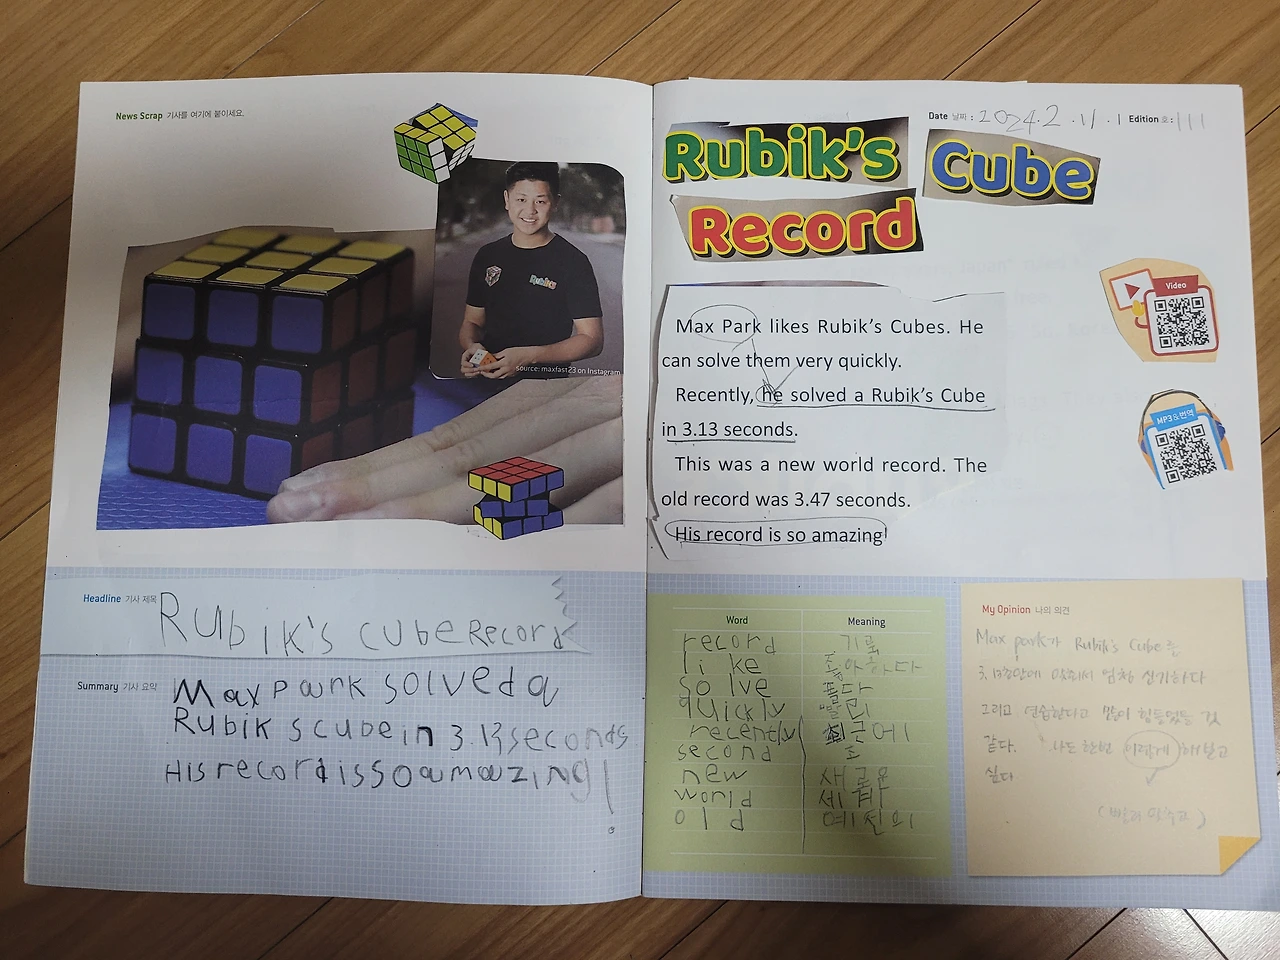 News Scrap 기사를 여기에 붙이세요.
Rubik's
source: maxfast23 on Instagram
Headline 기사 제목
Rubik's cube Record
Summary 기사 요약
Max park solved a
Rubik s cube in 3.13 seconds
His record is so amazing!
Date 날짜 : 2024.2.11.1 Edition 호: 111
Rubik's Cube
Record
Video
MP3&번역
Max Park likes Rubik's Cubes. He
can solve them very quickly.
Recently, he solved a Rubik's Cube
in 3.13 seconds.
This was a new world record. The
old record was 3.47 seconds.
His record is so amazing!
Word Meaning
record 기록
like 좋아하다
solve 풀다
quickly 빨리
recently 최근에
second 초
new 새로운
world 세계
old 예전의
My Opinion 나의 의견
Max park가 Rubik's Cube를
3.13초만에 맞춰서 엄청 신기하다
그리고 연습한다고 많이 힘들었을 것
같다. 나도 한번 이렇게 해보고
싶다
(빨리 맞추고)